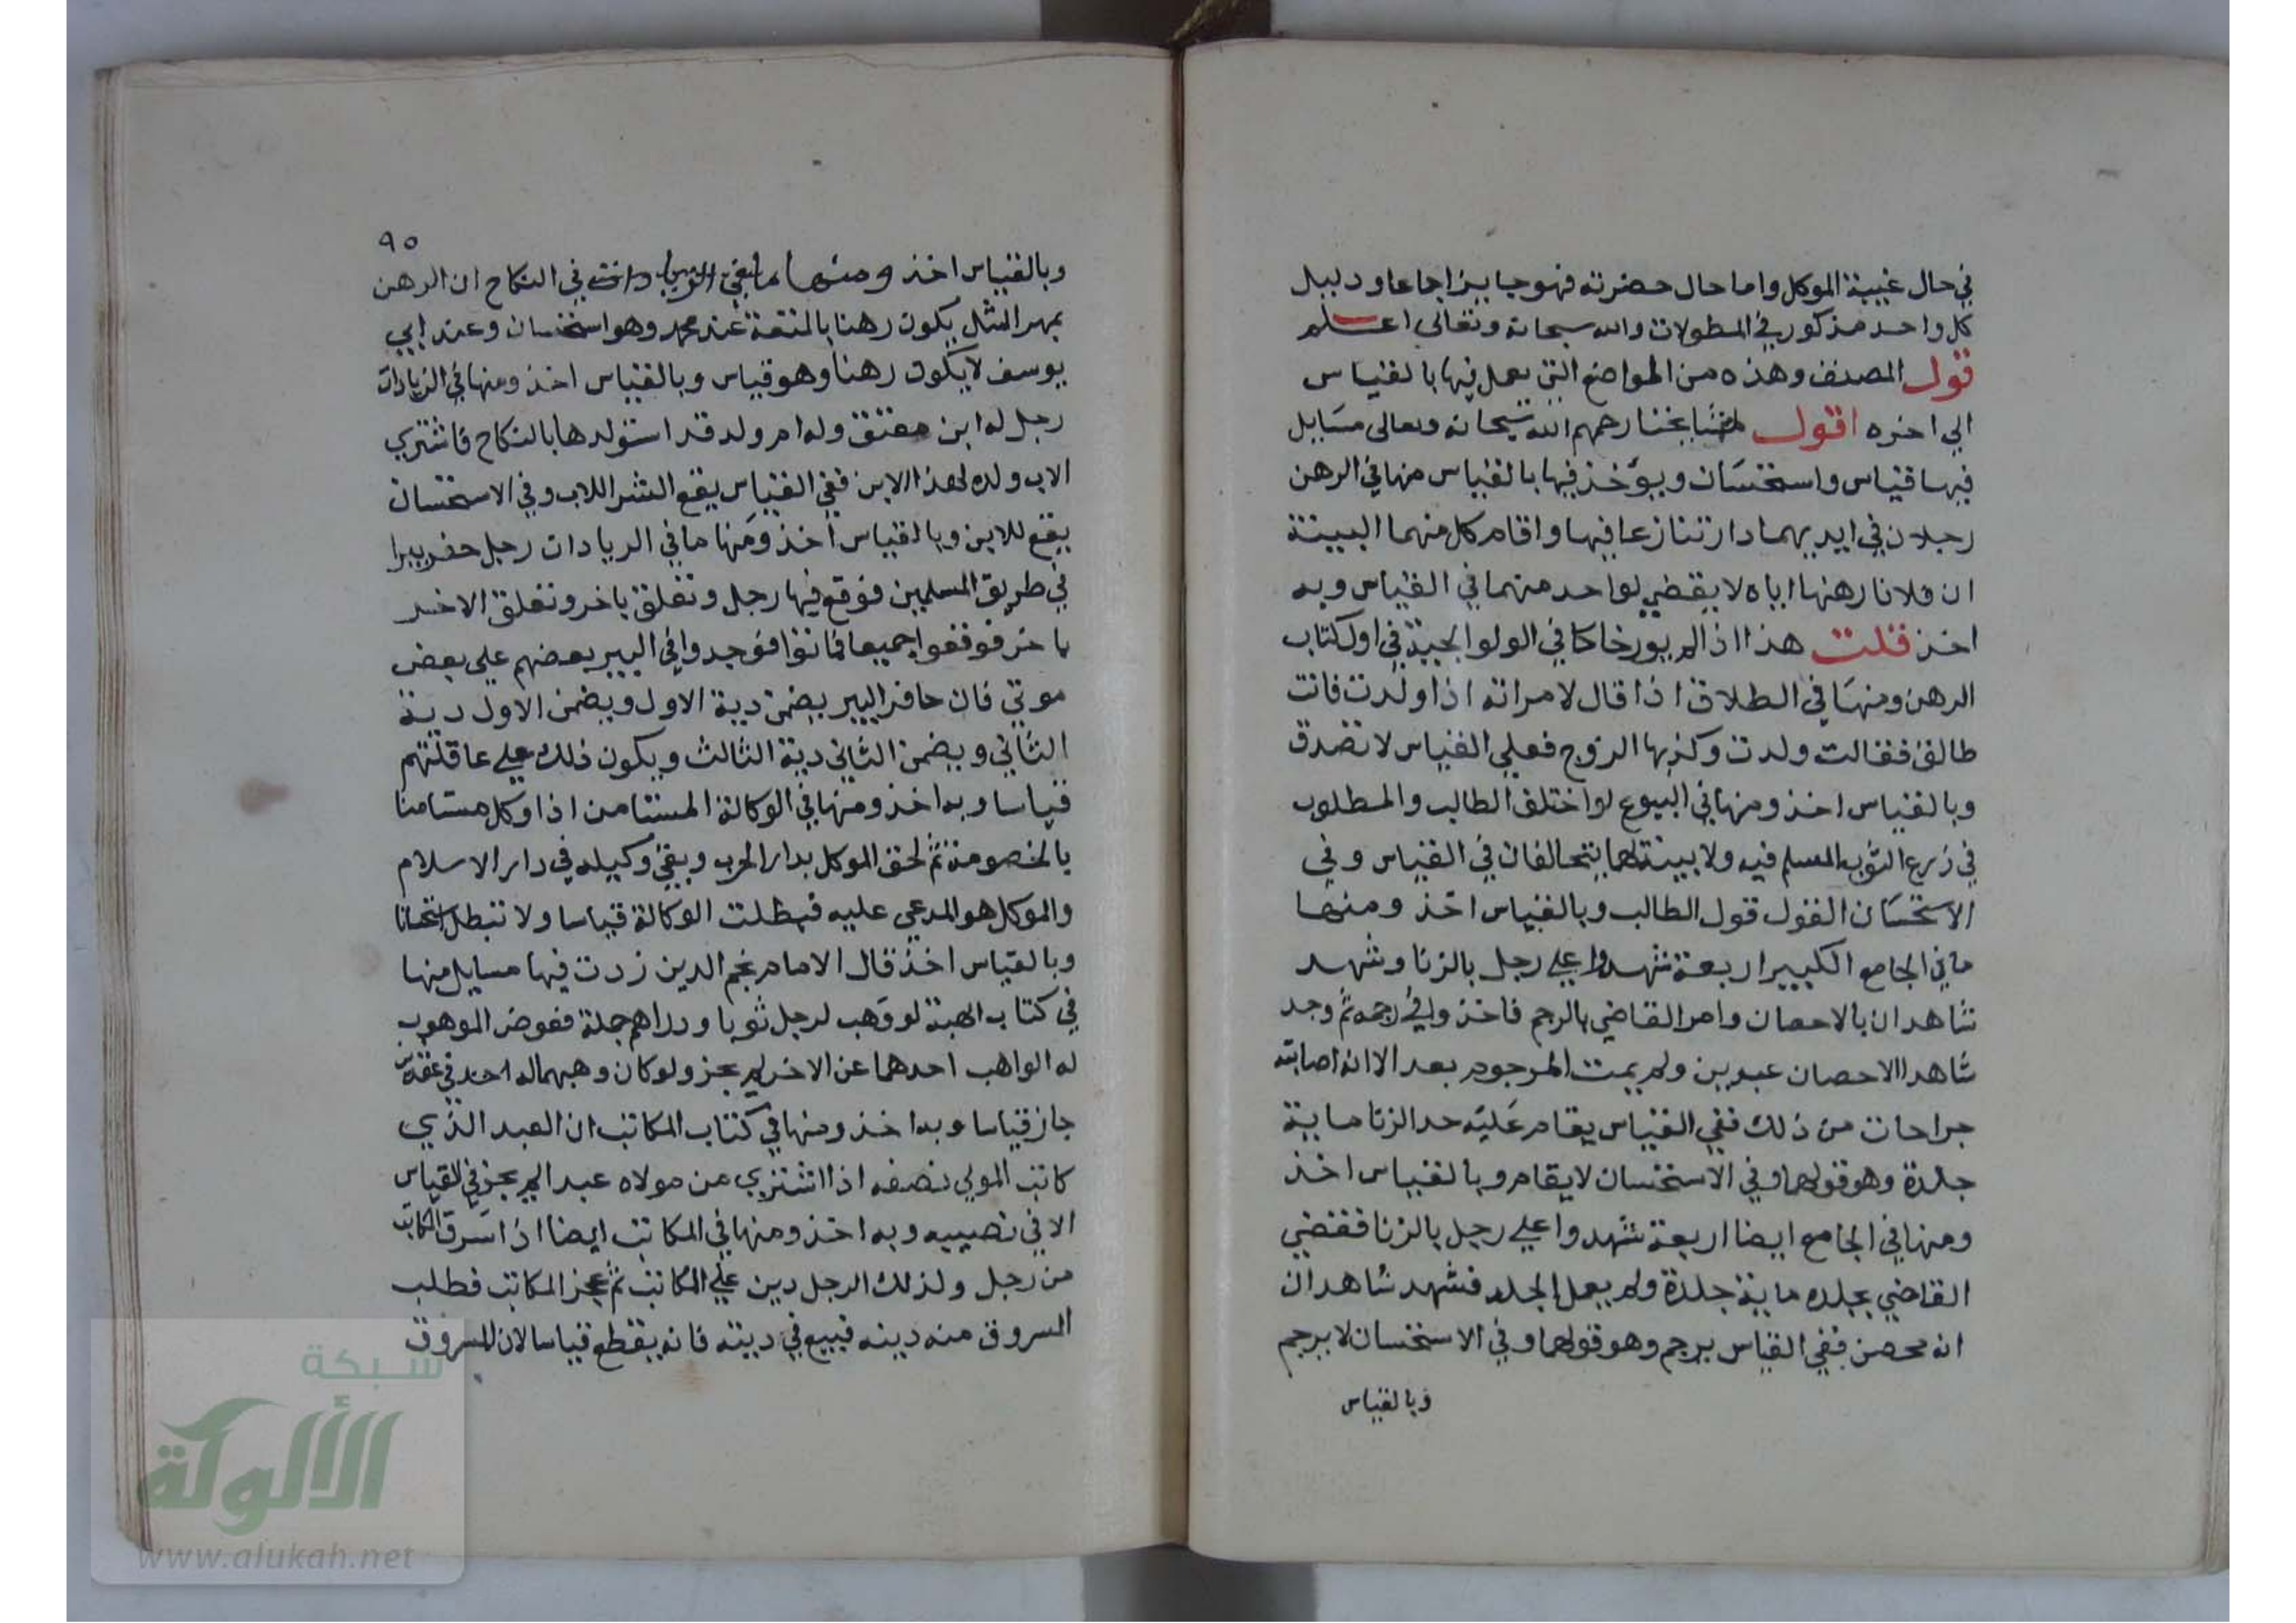 في حال غيبة الموكل واما حال حضرته فهو جايز اجماعا ودليل
كل واحد مذكور في المطولات والله سبحانه وتعالى اعلم
قول المصنف وهذه من المواضع التي يعمل فيها بالقياس
الي اخره اقول لمشايخنا رحمهم الله سبحانه وتعالى مسايل
فيها قياس واستحسان ويؤخذ فيها بالقياس منها في الرهن
رجلان في ايديهما دار تنازعا فيها واقام كل منهما البينة
ان فلانا رهنها اياه لا يقضي لواحد منهما في القياس وبه
اخذ قلت هذا اذا لم يورخا كما في الولوالجية في اول كتاب
الرهن ومنها في الطلاق اذا قال لامراته اذا ولدت فانت
طالق فقالت ولدت وكذبها الزوج فعلي القياس لا تصدق
وبالقياس اخذ ومنها في البيوع لو اختلف الطالب والمطلوب
في ذرع الثوب المسلم فيه ولا بينة لهما يتحالفان في القياس وفي
الاستحسان القول قول الطالب وبالقياس اخذ ومنها
ما في الجامع الكبير اربعة شهدوا علي رجل بالزنا وشهد
شاهدان بالاحصان وامر القاضي بالرجم فاخذوا في رجمه ثم وجد
شاهدا الاحصان عبدين ولم يمت المرجوم بعد الا انه اصابته
جراحات من ذلك ففي القياس يقام عليه حد الزنا ماية
جلدة وهو قولهما وفي الاستحسان لا يقام وبالقياس اخذ
ومنها في الجامع ايضا اربعة شهدوا علي رجل بالزنا فقضي
القاضي بجلده ماية جلدة ولم يعمل الجلد فشهد شاهدان
انه محصن ففي القياس يرجم وهو قولهما وفي الاستحسان لا يرجم
وبالقياس
٩٥
وبالقياس اخذ ومنها ما في في النكاح ان الرهن
بمهر المثل يكون رهنا بالمتعة عند محمد وهو استحسان وعند ابي
يوسف لا يكون رهنا وهو قياس وبالقياس اخذ ومنها في الزيادات
رجل له ابن معتق وله ام ولد قد استولدها بالنكاح فاشتري
الاب ولده لهذا الابن ففي القياس يقع الشرا للاب وفي الاستحسان
يقع للابن وبالقياس اخذ ومنها ما في الزيادات رجل حفر بيرا
في طريق المسلمين فوقع فيها رجل وتعلق باخر وتعلق الاخر
باخر فوقعوا جميعا فماتوا فوجدوا في البير بعضهم علي بعض
موتي فان حافر البير يضمن دية الاول ويضمن الاول دية
الثاني ويضمن الثاني دية الثالث ويكون ذلك علي عاقلتهم
قياسا وبه اخذ ومنها في الوكالة المستامن اذا وكل مستامنا
بالخصومة ثم لحق الموكل بدار الحرب وبقي وكيله في دار الاسلام
والموكل هو المدعي عليه فبطلت الوكالة قياسا ولا تبطل استحسانا
وبالقياس اخذ قال الامام نجم الدين زدت فيها مسايل منها
في كتاب الهبة لو وهب لرجل ثوبا ودراهم جملة فعوض الموهوب
له الواهب احدهما عن الاخر لم يجز ولو كان وهبهما له احد في عقدين
جاز قياسا وبه اخذ ومنها في كتاب المكاتب ان العبد الذي
كاتب المولي نصفه اذا اشتري من مولاه عبدا لم يجز في القياس
الا في نصيبه وبه اخذ ومنها في المكاتب ايضا اذا سرق المكاتب
من رجل ولذلك الرجل دين علي المكاتب ثم عجز المكاتب فطلب
المسروق منه دينه فبيع في دينه فانه يقطع قياسا لان المسروق
شبكة
الألوكة
www.alukah.net